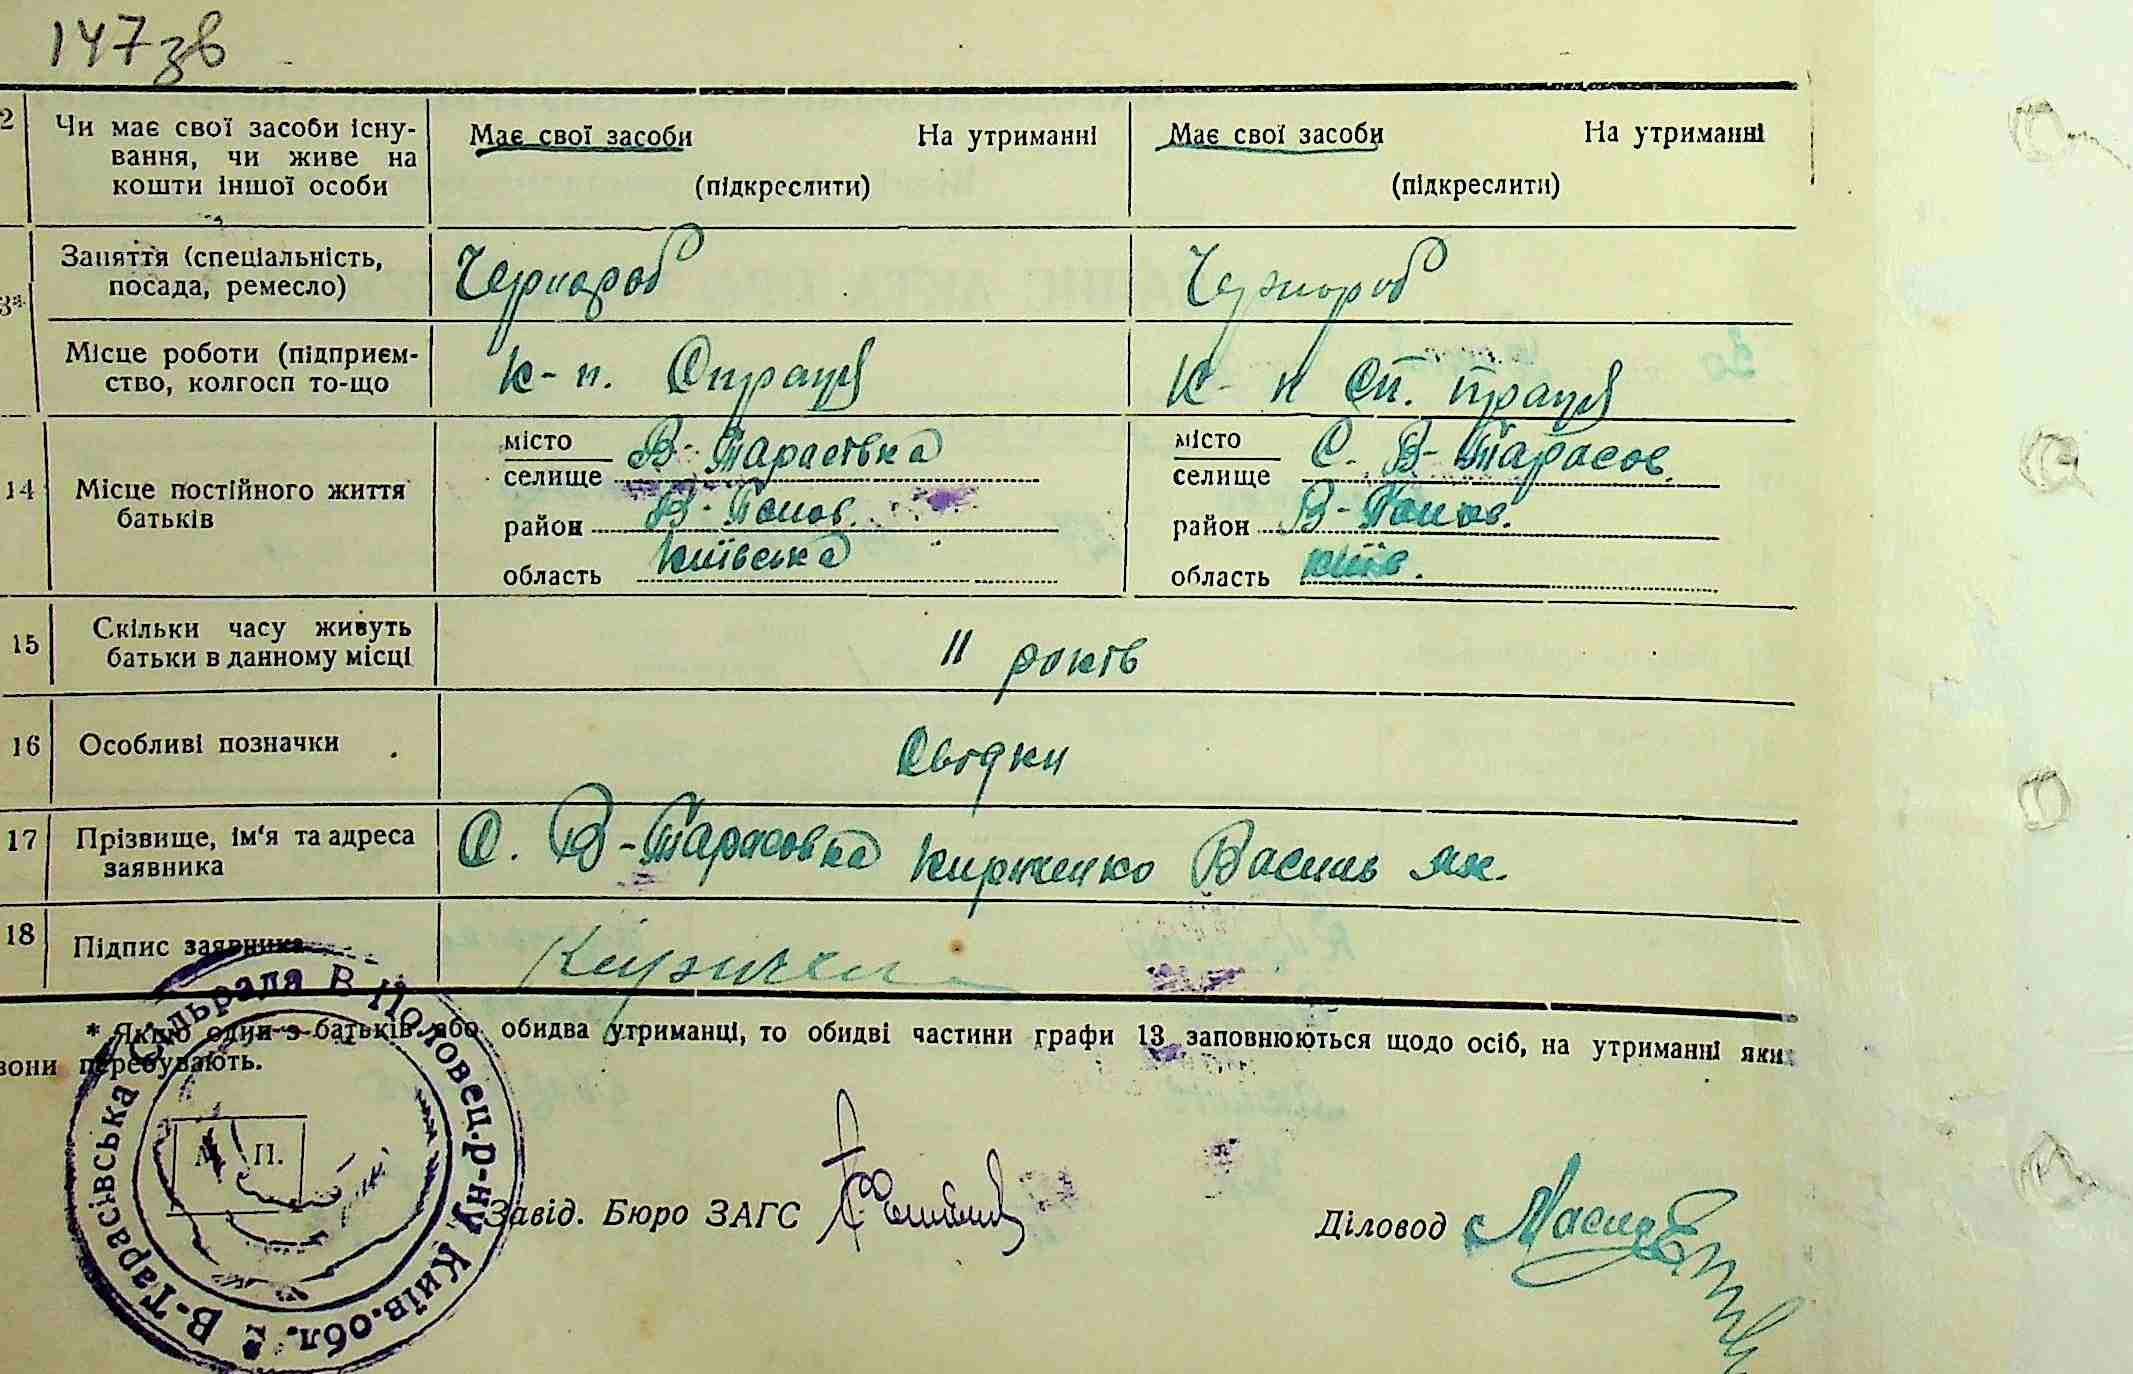 147зв
2 Чи має свої засоби існу-
вання, чи живе на
кошти іншої особи
Має свої засоби На утриманні
(підкреслити)
Має свої засоби На утриманні
(підкреслити)
3а Заняття (спеціальність,
посада, ремесло)
Чернороб
Чернороб
Місце роботи (підприєм-
ство, колгосп то-що
К-п. Спраця
К-п Сп. праця
14 Місце постійного життя
батьків
місто
селище В-Тарасівка
район В-Полов.
область Київська
місто
селище С. В-Тарасов.
район В-Полов.
область Київ.
15 Скільки часу живуть
батьки в данному місці
11 років
16 Особливі позначки
Свідки
17 Прізвище, ім'я та адреса
заявника
С. В-Тарасовка Кириченко Василь Як.
18 Підпис заявника
* Якщо один з батьків або обидва утриманці, то обидві частини графи 13 заповнюються щодо осіб, на утриманні яких
вони перебувають.
В-Тарасівська сільрада В Половец.р-ну Київ.обл.
П.
Завід. Бюро ЗАГС
Діловод